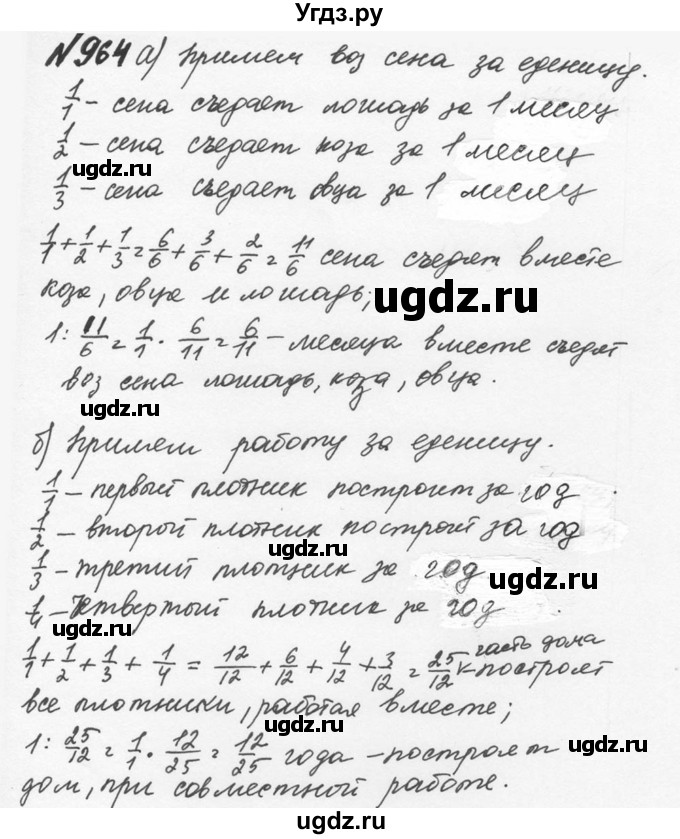 Угдз.ру
№964 а) Примем воз сена за еденицу.
1/1 - сена съедает лошадь за 1 месяц
1/2 - сена съедает коза за 1 месяц
ugdz.ru
1/3 - сена съедает овца за 1 месяц
ugdz.ru
1/1+1/2+1/3=6/6+3/6+2/6=11/6 сена съедят вместе
ugdz.ru
коза, овца и лошадь;
ugdz.ru
1:11/6=1/1·6/11=6/11 - месяца вместе съедят
воз сена лошадь, коза, овца.
ugdz.ru
ugdz.ru
б) Примем работу за еденицу.
ugdz.ru
1/1 - первый плотник построит за год
1/2 - второй плотник построит за год
ugdz.ru
1/3 - третий плотник за год
ugdz.ru
1/4 - Четвертый плотник за год
ugdz.ru
1/1+1/2+1/3+1/4=12/12+6/12+4/12+3/12=25/12 часть дома - построят
все плотники, работая вместе;
ugdz.ru
1:25/12=1/1·12/25=12/25 года - построят
ugdz.ru
дом, при совместной работе.
Угдз.ру